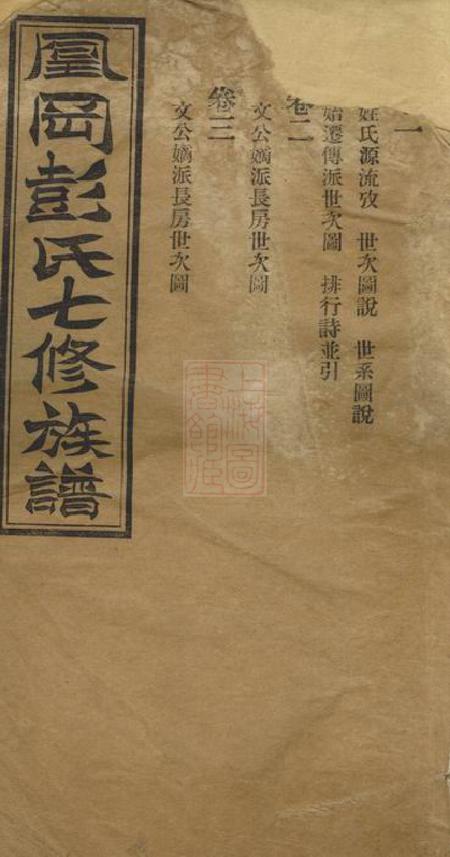 一
姓氏源流攷　世次圖說　世系圖說
始遷傳派世次圖　排行詩並引
卷二
文公嫡派長房世次圖
卷三
文公嫡派長房世次圖
凰岡彭氏七修族譜
上海圖書館藏